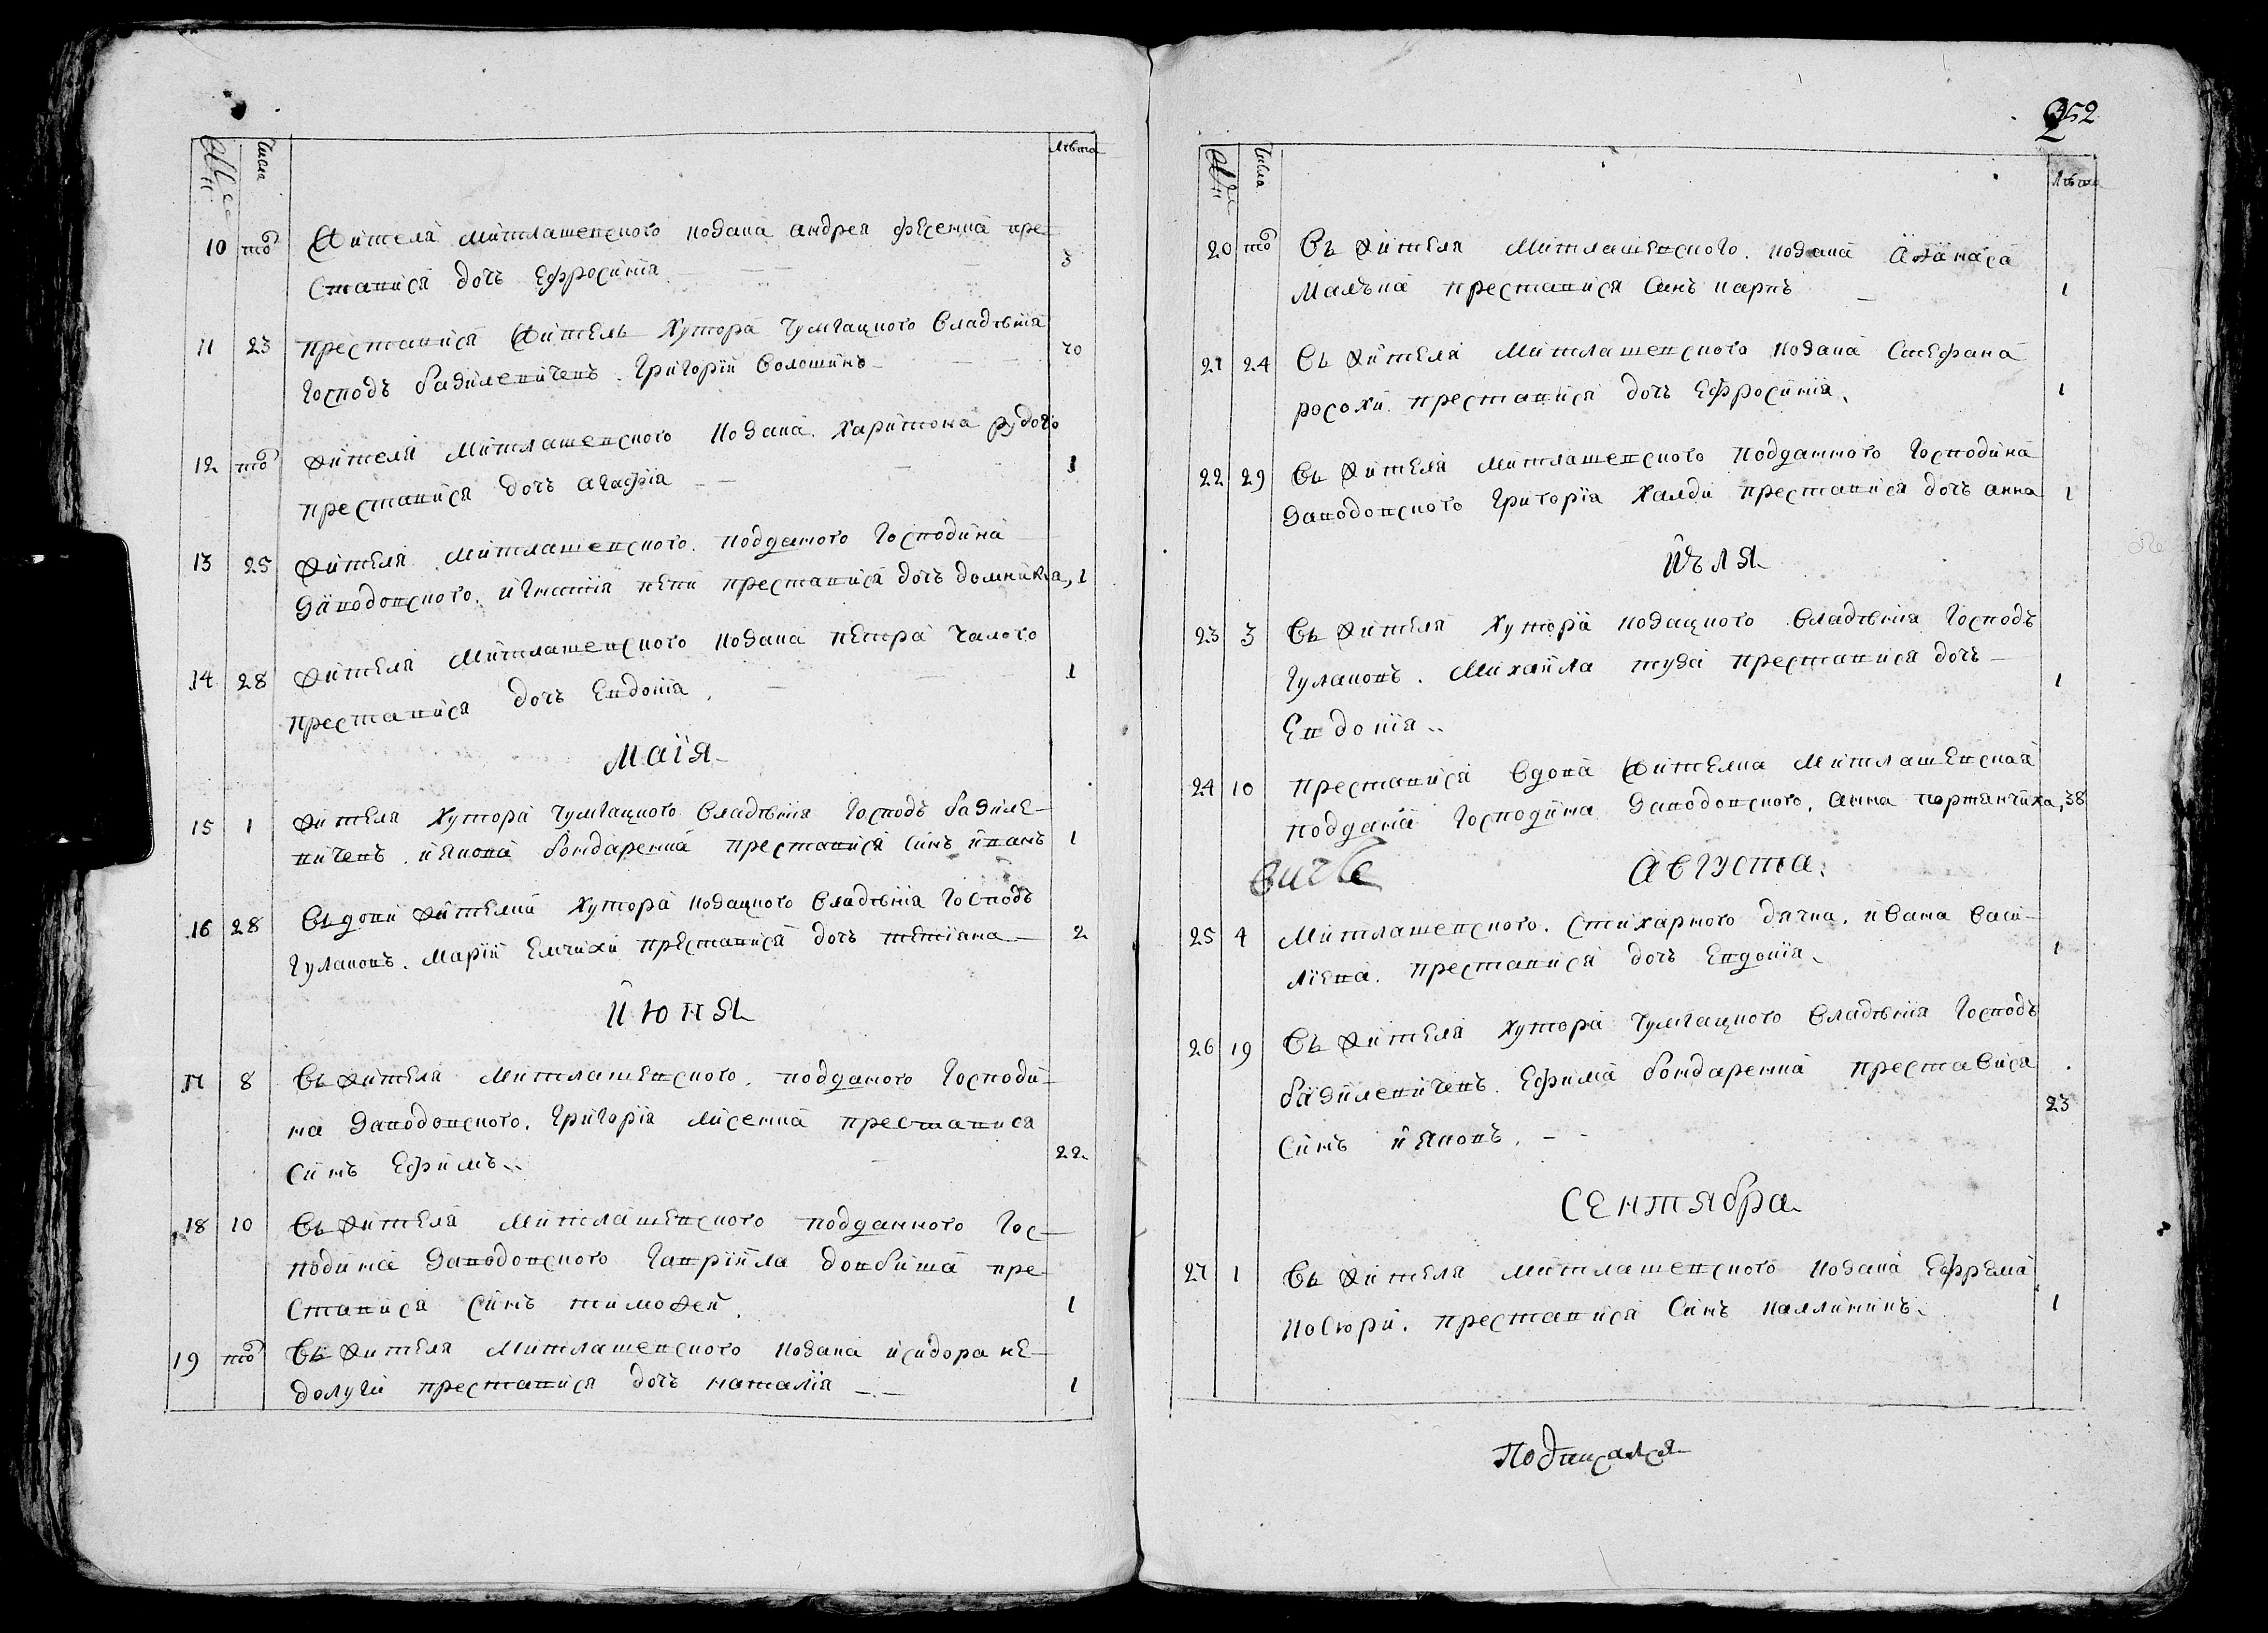 № Числа лѣта
10 того Жителя митлашевского козака андрея фесенка пре-
ставися дочь Ефросинїя 3
11 23 преставися Житель Хутора Чумгацкого владѣнїя
Господъ базилевичевъ. Григорїй Волошинъ 70
12 того Жителя митлашевского козака. Харитона рудого
преставися дочь агафїя 1
13 25 Жителя митлашевского. подданого Господина
Заводовского. игнатїя преставися дочь домникїа, 1
14 28 Жителя митлашевского козака петра Чалого
преставися дочь Евдокїя. 1
маїя
15 1 Жителя Хутора Чумгацкого владѣнїя Господъ базиле-
вичевъ. иякова бондаренка преставися синъ иванъ 1
16 28 Въ довы жителки Хутора козацкого владѣнїя Господъ
Гулаковъ. Марїи Емчихи преставися дочь тетїяна 2
июня
17 8 Въ жителя митлашевского. подданого Господи-
на Заводовского. Григорїя лисенка преставися
синъ Ефимъ. 22
18 10 Въ жителя митлашевского подданного Гос-
подина Заводовского Гаврїила довбиша пре
ставися синъ тимофей. 1
19 того Въ жителя митлашевского козака исидора не-
долуги преставися дочь наталїя 1
252
№ Числа лѣта
20 того Въ жителя митлашевского. козака Афанаса
преставися синъ карпъ 1
21 24 Въ жителя митлашевского козака Стефана
росохи. преставися дочь Ефросинїя. 1
22 29 Въ жителя митлашевского подданного Господина
Заводовского Григорїя Халди преставися дочь анна 1
июля
23 3 Въ жителя Хутора козацкого владѣнїя Господъ
Гулаковъ. Михайла туза преставися дочь
Евдокїя. 1
24 10 преставися вдова жителка митлашевская
поддана Господина Заводовского. Анна портянчиха, 38
Августа.
25 4 митлашевского. стихарного дячка. ивана васи-
лїева. преставися дочь Евдокїя. 1
26 19 Въ жителя хутора Чумгацкого владѣнїя Господъ
базилевичевъ. Ефима бондаренка преставися
синъ ияковъ. 23
Сентября
27 1 Въ жителя митлашевского козака Ефрема
Костюри. преставися синъ каллиникъ. 1
Подписался